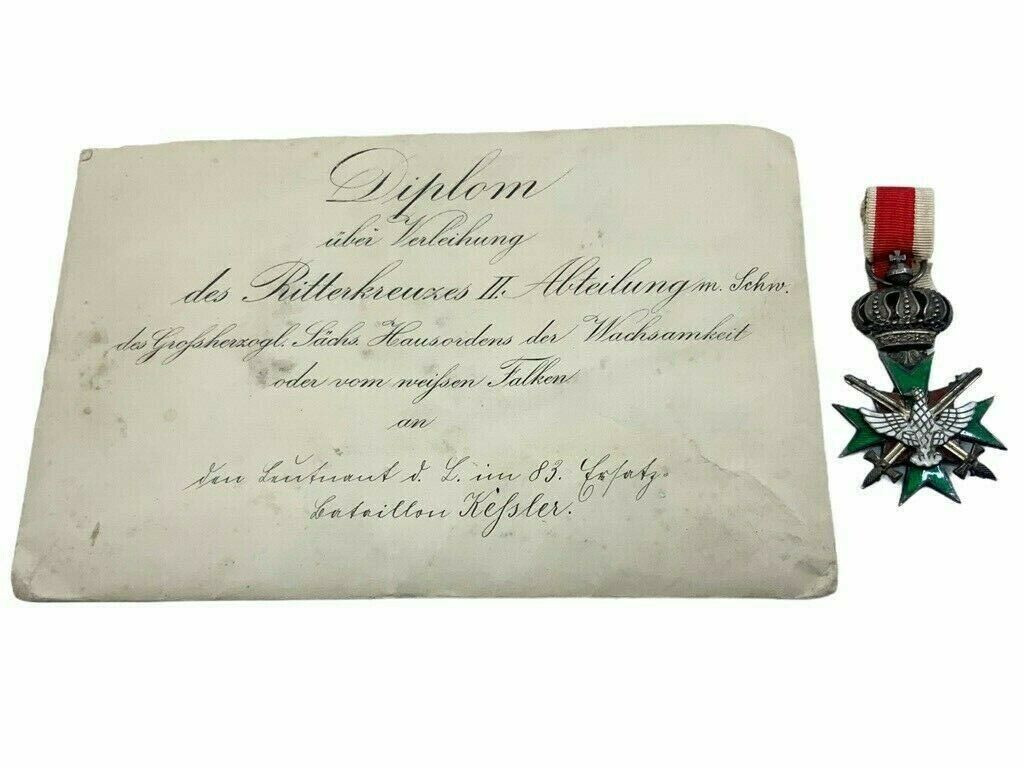 Diplom
über Verleihung
des Ritterkreuzes II. Abteilung m. Schw.
des Großherzogl. Sächs. Hausordens der Wachsamkeit
oder vom weißen Falken
an
den Leutnant d. L. im 83. Ersatz-
Bataillon Keßler.